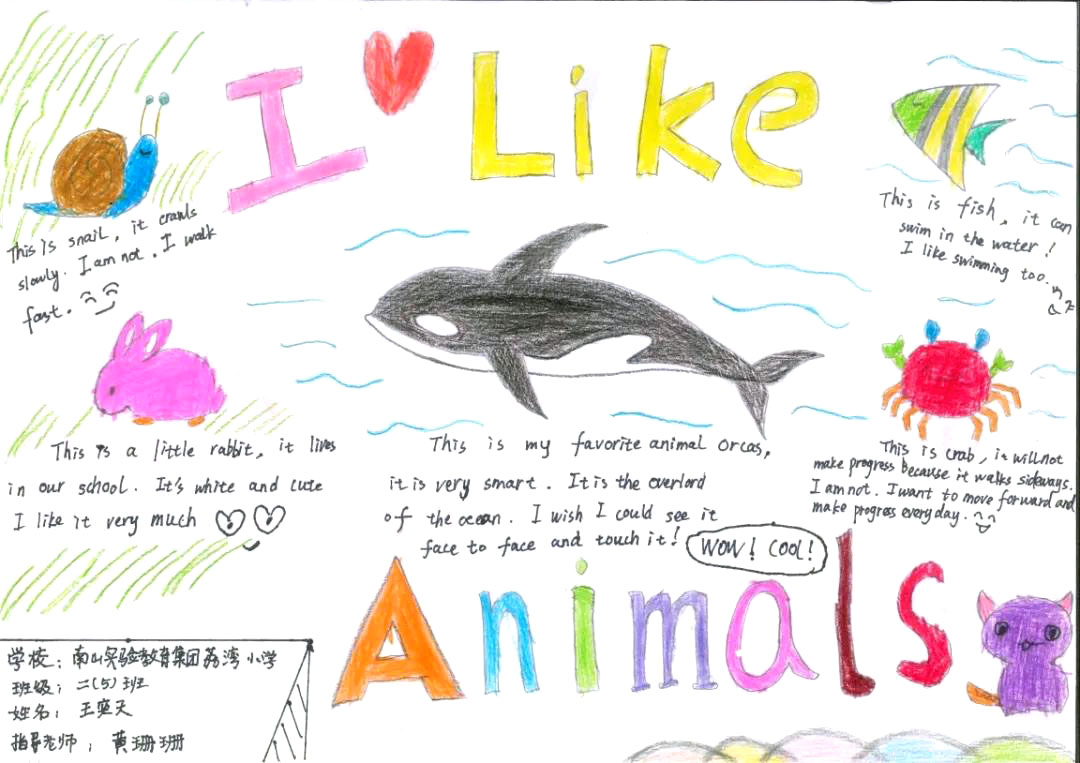 I Like
This is snail, it crawls
slowly. I am not. I walk
fast.
This is fish, it can
swim in the water!
I like swimming too.
This is a little rabbit, it lives
in our school. It's white and cute
I like it very much
This is my favorite animal Orcas,
it is very smart. It is the overlord
of the ocean. I wish I could see it
face to face and touch it!
WOW! COOL!
This is crab, it will not
make progress because it walks sideways.
I am not. I want to move forward and
make progress every day.
Animals
学校：南山实验教育集团荔湾小学
班级：二(5)班
姓名：王奕天
指导老师：黄珊珊